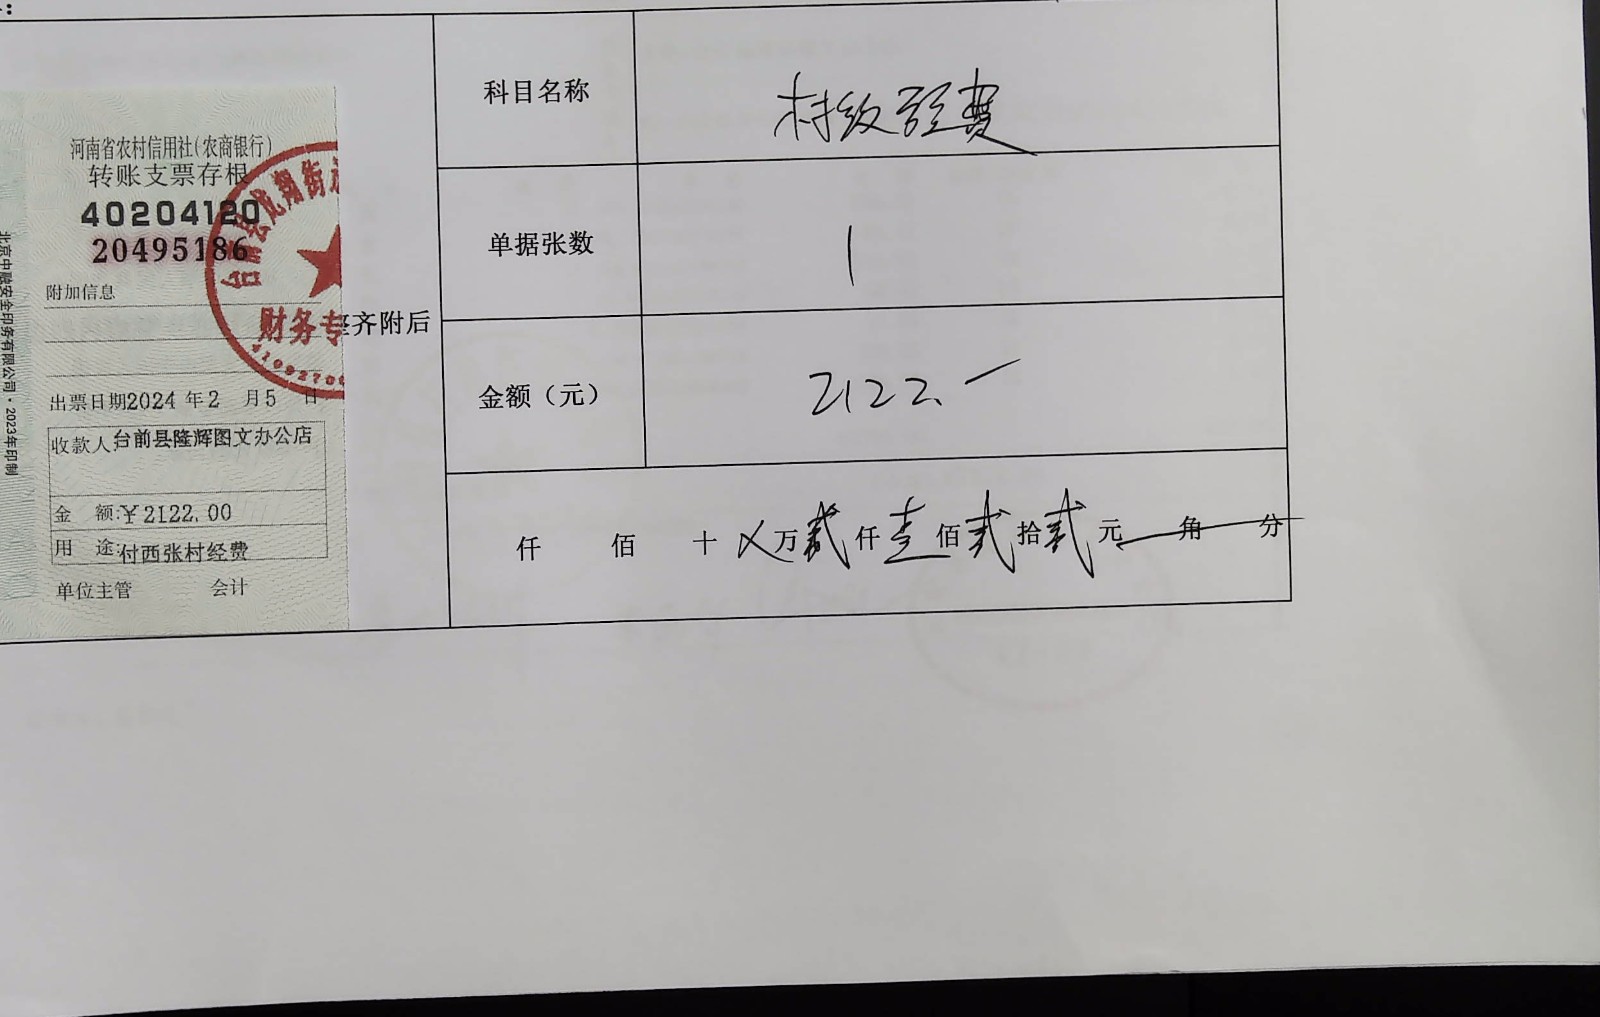 河南省农村信用社(农商银行)
转账支票存根
40204120
20495186
附加信息
出票日期2024年2月5日
收款人:台前县隆辉图文办公店
金 额:¥2122.00
用 途:付西张村经费
单位主管 会计
北京中融安全印务有限公司·2023年印制
台前县龙翔街
财务专
4109270
整齐附后
科目名称 村级经费
单据张数 1
金额（元） 2122.
仟 佰 十 ㄨ万贰仟壹佰贰拾贰元 角 分